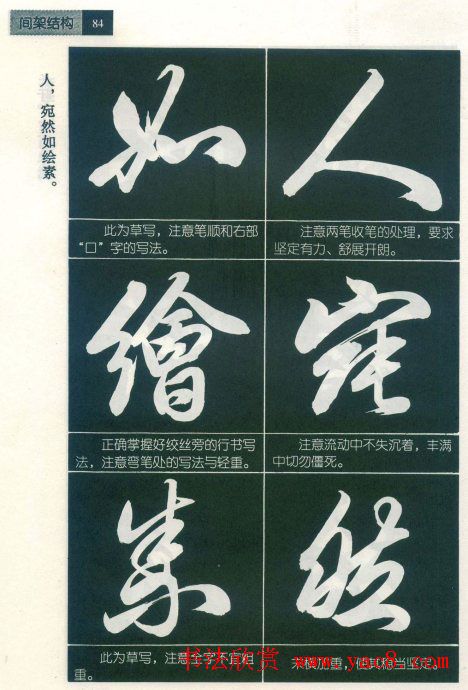 间架结构 84
人，宛然如绘素。
人
注意两笔收笔的处理，要求
坚定有力、舒展开朗。
宛
注意流动中不失沉着，丰满
中切勿僵死。
然
末横加重，使其稳当坚定。
如
此为草写，注意笔顺和右部
“口”字的写法。
繪
正确掌握好绞丝旁的行书写
法，注意弯笔处的写法与轻重。
素
此为草写，注意全字不宜粗
重。
书法欣赏 www.yac8.com